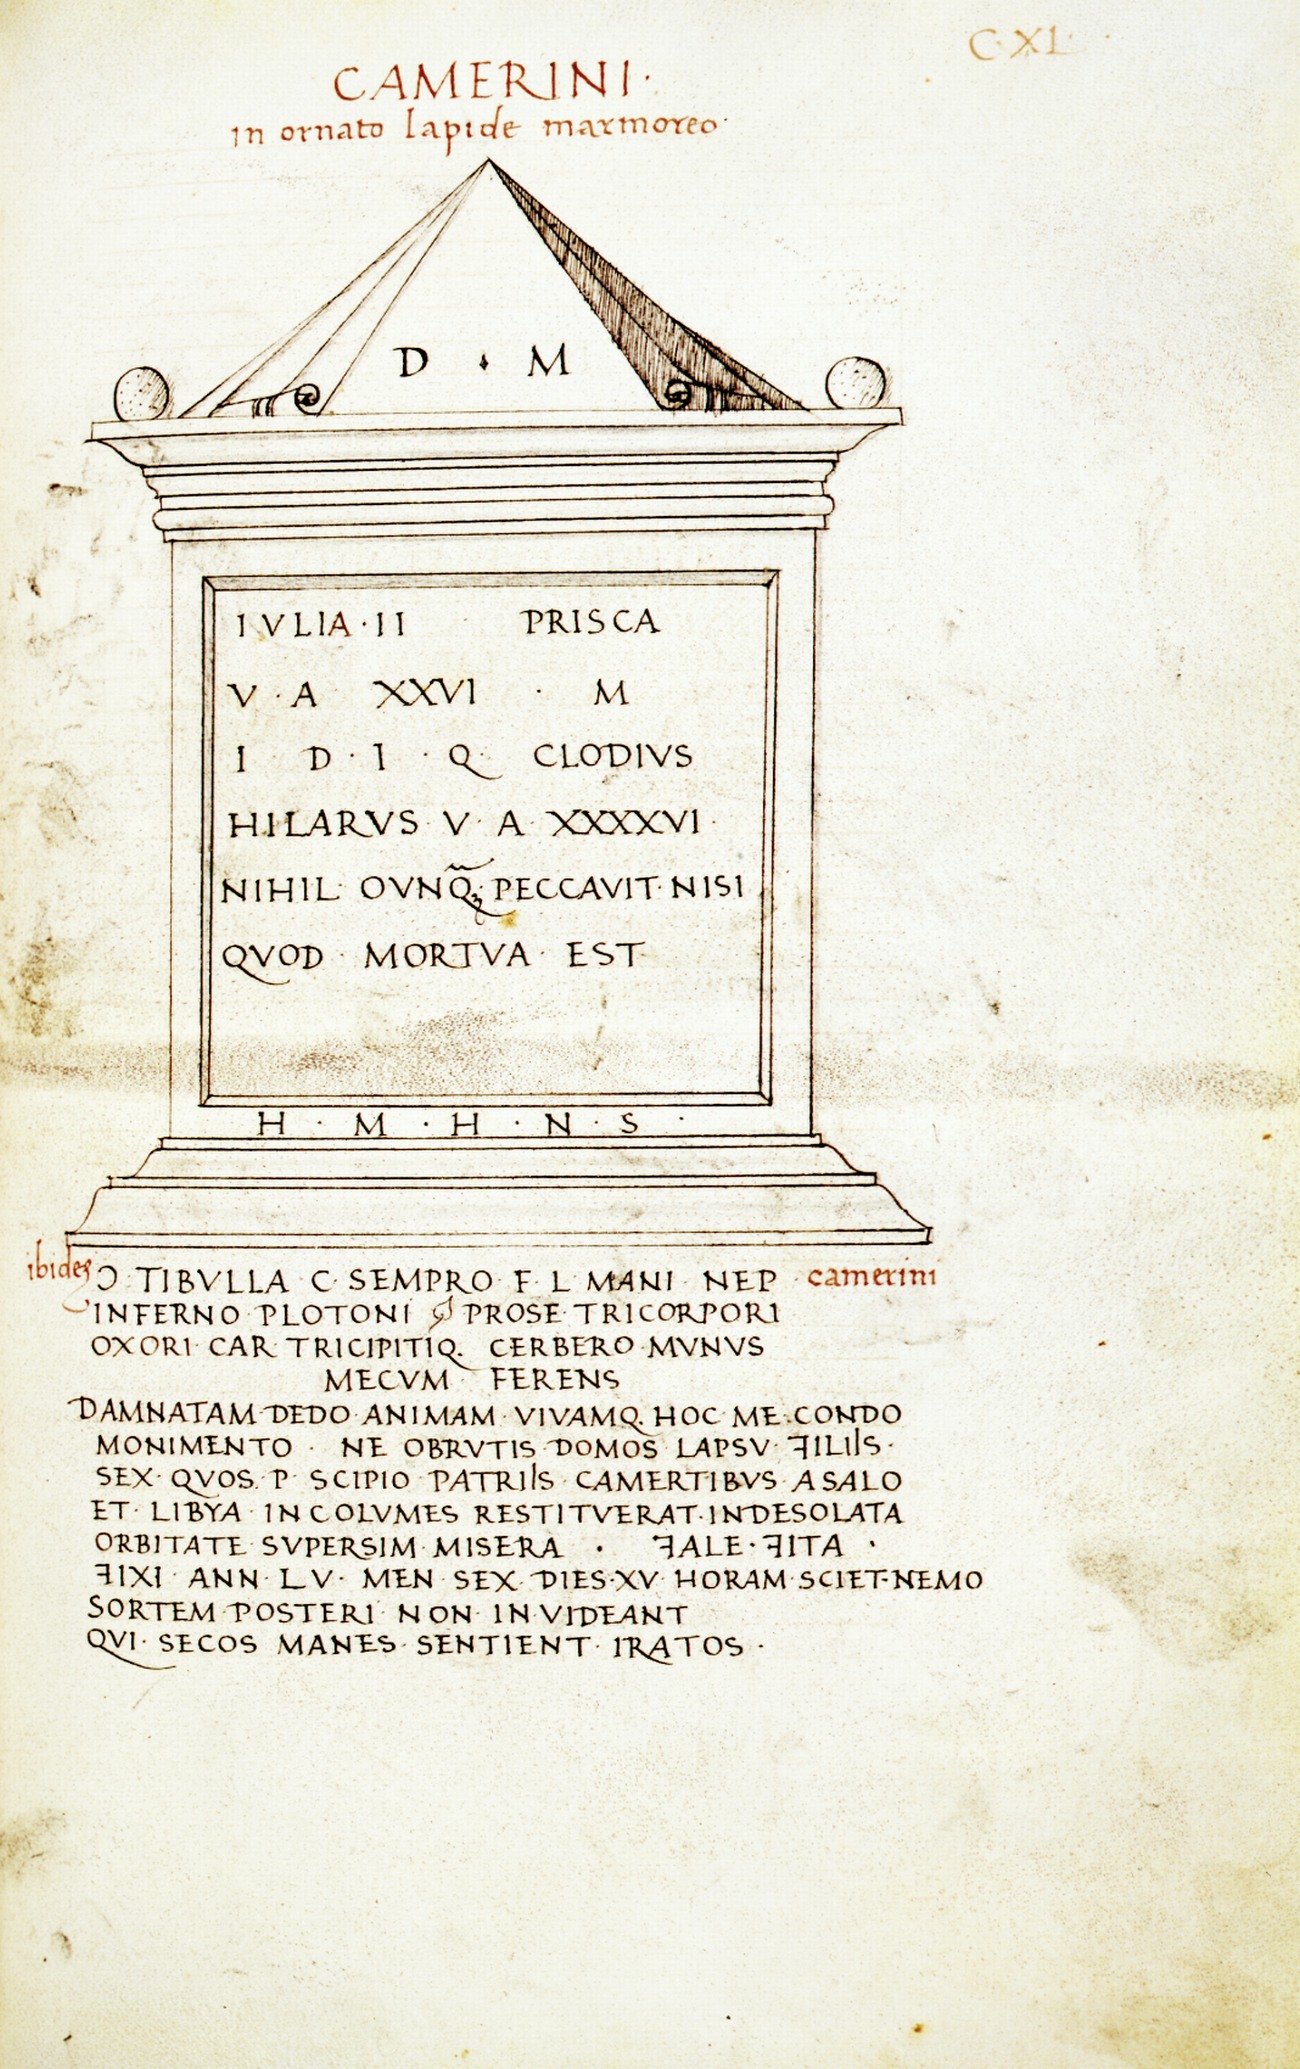 C·XL·
CAMERINI·
in ornato lapide marmoreo
D · M
IVLIA·II PRISCA
V · A XXVI · M
I D · I · Q CLODIVS
HILARVS V· A· XXXXVI·
NIHIL OVNQ̃ꝫ PECCAVIT·NISI
QVOD · MORTVA· EST
H · M · H · N · S ·
Ɔ TIBVLLA C· SEMPRO· F· L MANI NEP · camerini
INFERNO PLOTONI PROSE·TRICORPORI
OXORI· CAR TRICIPITIQ. CERBERO·MVNVS
MECVM FERENS
DAMNATAM·DEDO·ANIMAM·VIVAMQ. HOC·ME·CONDO
MONIMENTO · NE OBRVTIS·DOMOS LAPSV·ꟻILIIS·
SEX·QVOS. P· SCIPIO PATRIIS CAMERTIBVS·A SALO
ET· LIBYA· INCOLVMES RESTITVERAT·INDESOLATA
ORBITATE SVPERSIM·MISERA · ꟻALE·ꟻITA ·
ꟻIXI· ANN· LV· MEN SEX·DIES·XV·HORAM·SCIET·NEMO
SORTEM·POSTERI· NON· INVIDEANT
QVI· SECOS MANES·SENTIENT· IRATOS·